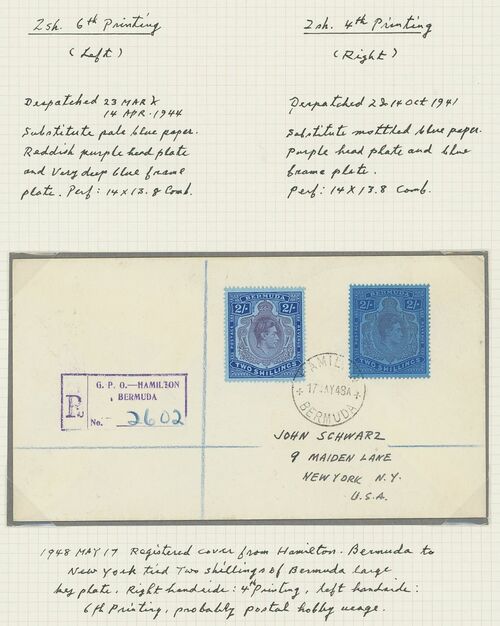 2sh. 6th Printing
(Left)
Despatched 23 MAR &
14 APR. 1944
Substitute pale blue paper.
Reddish purple head plate
and Very deep blue frame
plate. Perf: 14X13.8 Comb.
2sh. 4th Printing
(Right)
Despatched 2 & 14 Oct 1941
Substitute mottled blue paper.
Purple head plate and blue
frame plate.
Perf: 14X13.8 Comb.
BERMUDA
2/- 2/-
POSTAGE
TWO SHILLINGS
BERMUDA
2/- 2/-
TWO SHILLINGS
HAMILTON
17 MAY 48
BERMUDA
R
G. P. O.—HAMILTON
BERMUDA
No. 2602
JOHN SCHWARZ
9 MAIDEN LANE
NEW YORK N.Y.
U.S.A.
1948 MAY 17 Registered cover from Hamilton. Bermuda to
New York tied Two shillings of Bermuda large
key plate. Right handside: 4th Printing, left handside:
6th Printing, probably postal hobby usage.